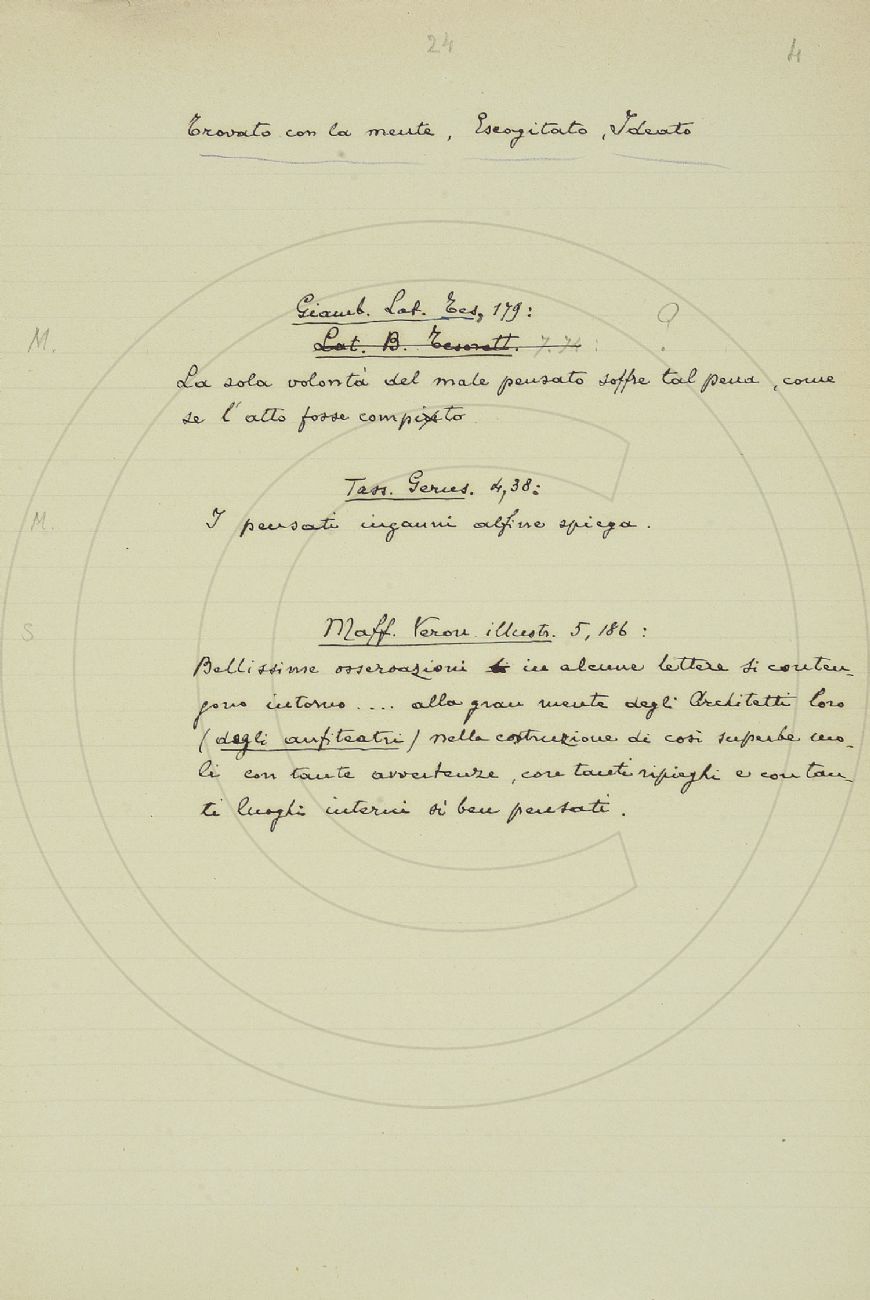 24 4
Trovato con la mente, Escogitato, Ideato
Giamb. Lat. Tes, 179: ?
M. Lat. B. Tesorett. 7. 74:
La sola volontà del male pensato soffre tal pena, come
se l'atto fosse compiuto
Tass. Gerus. 4,38:
M. I pensati inganni alfine spiega.
S Maff. Veron. illustr. 5, 186:
Bellissime osservazioni in alcune lettere si conten-
gono intorno .... alla gran mente degli Architetti loro
(degli anfiteatri) nella costruzione di così superbe mo-
li con tante avvertenze, con tanti ripieghi e con tan-
ti luoghi interni sì ben pensati.